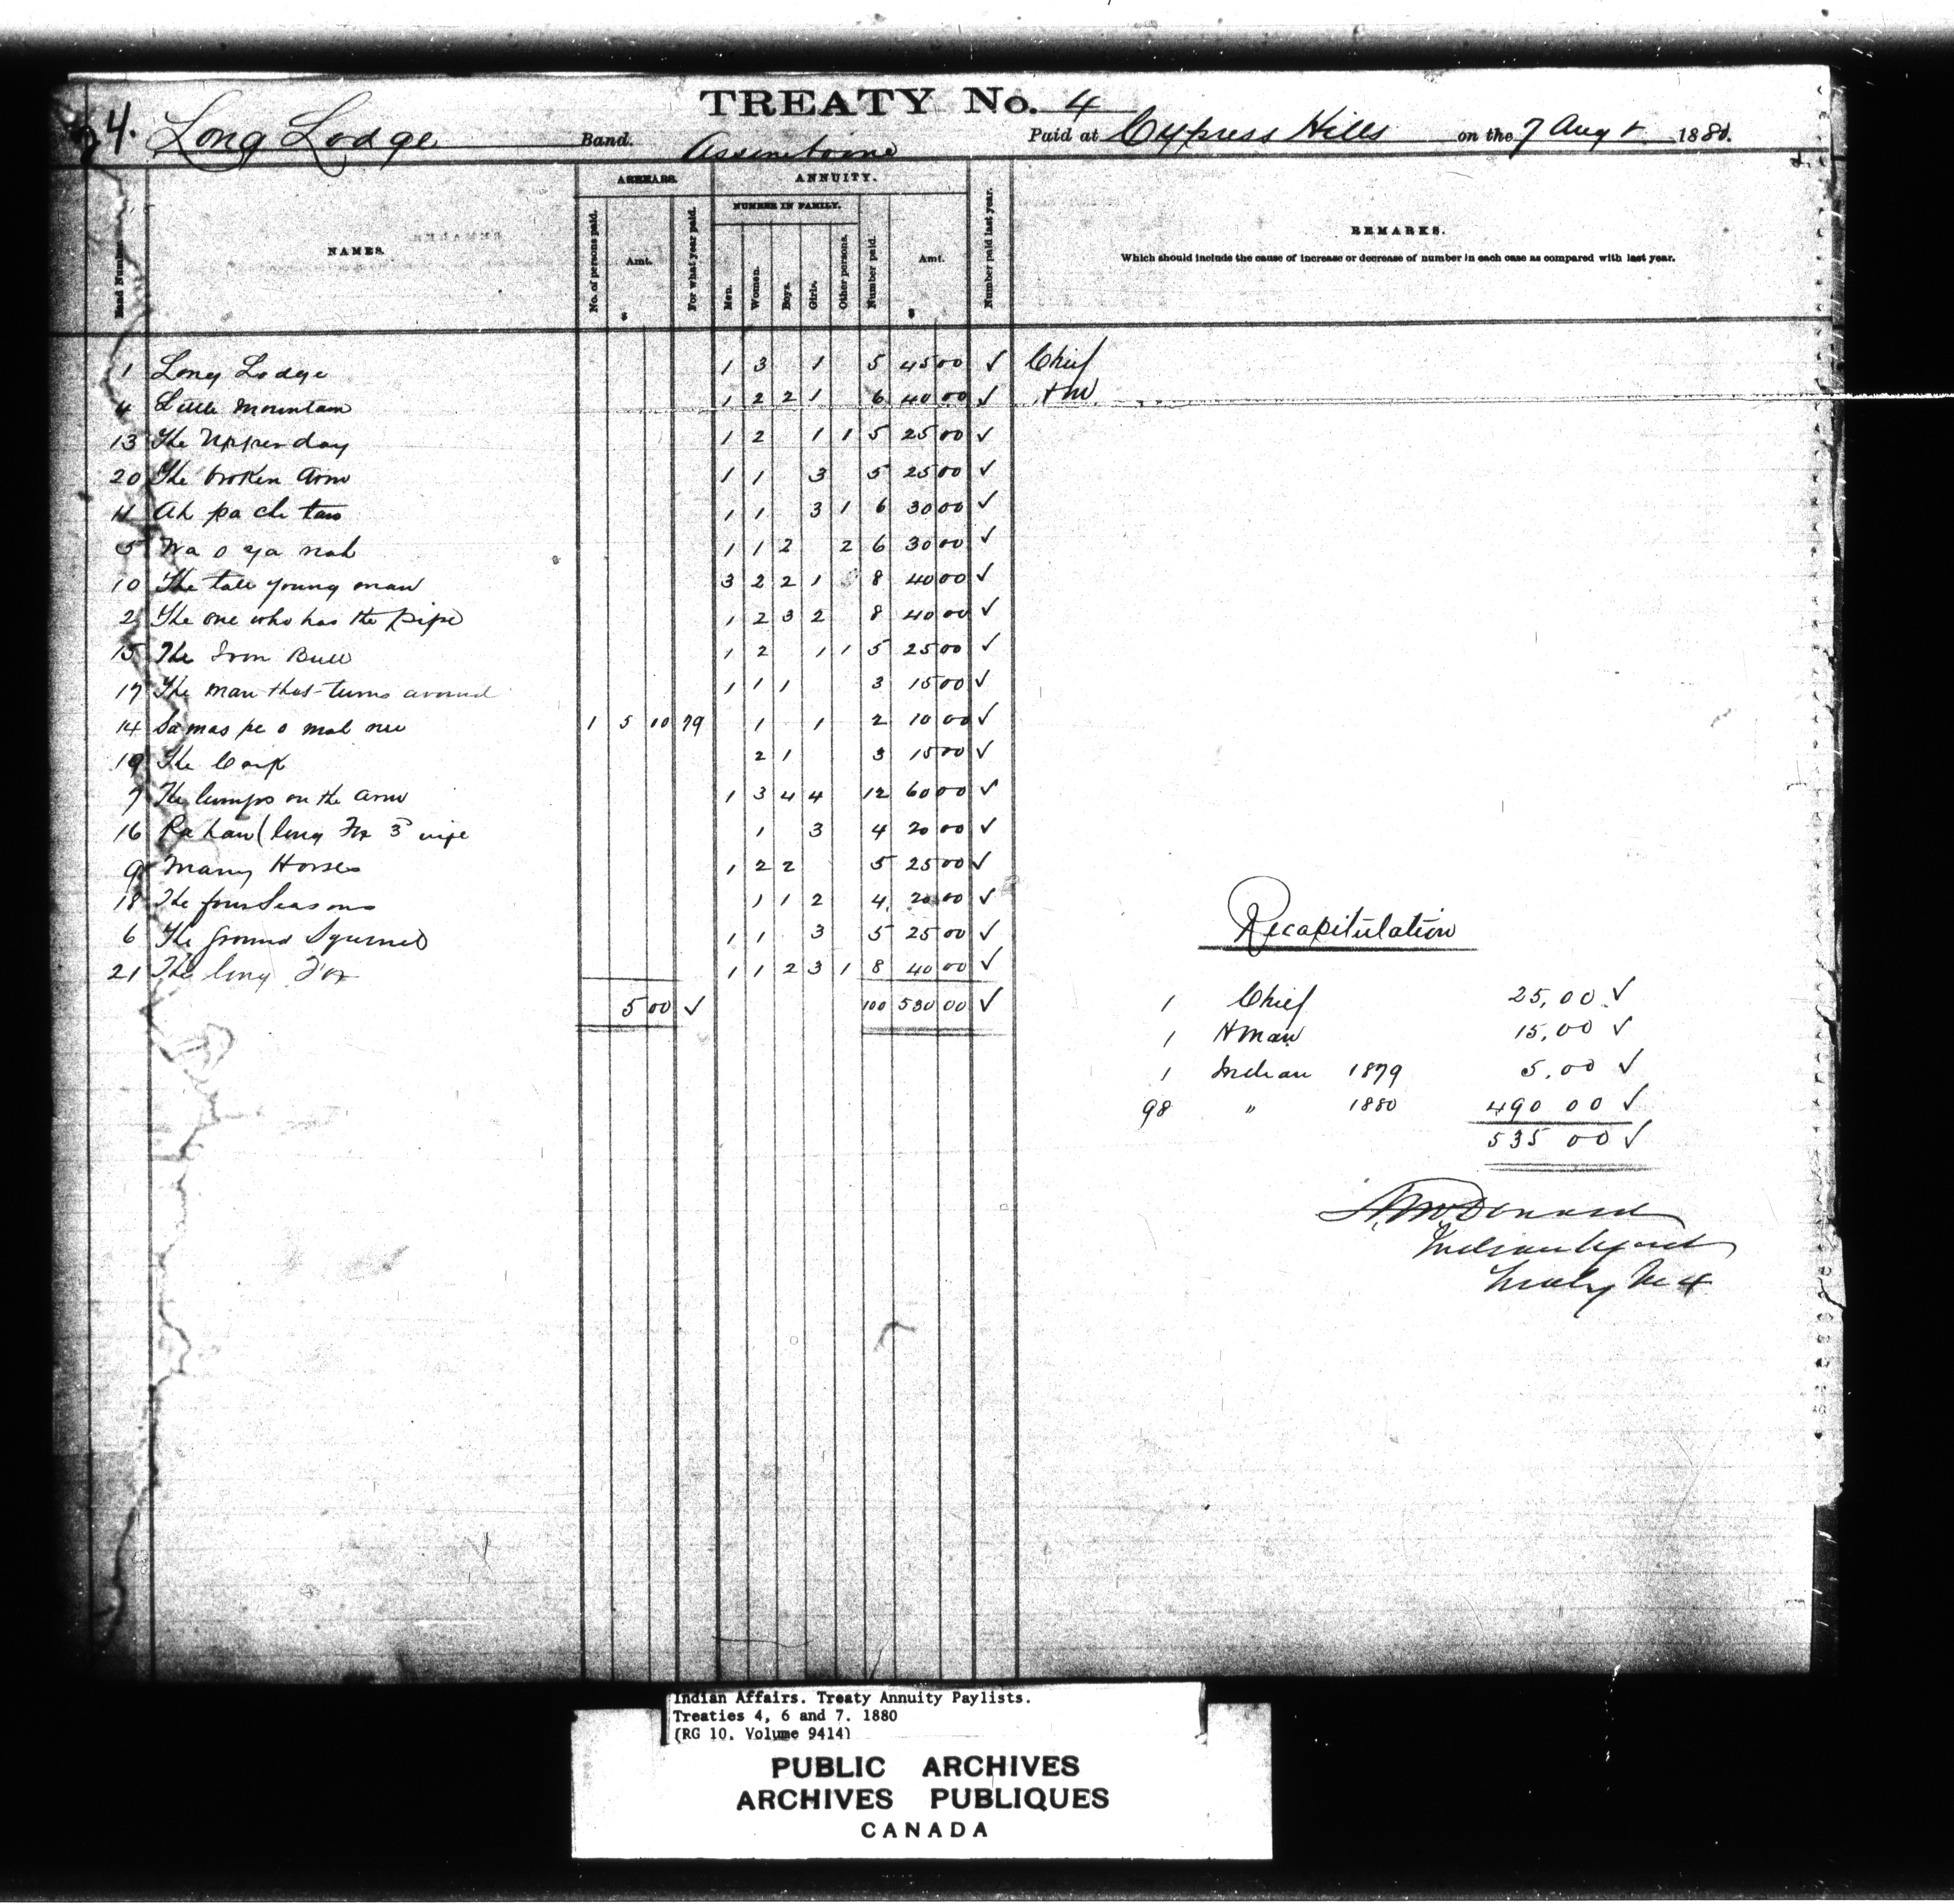 TREATY No. 4
4. Long Lodge Band. Assineboine Paid at Cypress Hills on the 7 Augt 1880.
ARREARS. ANNUITY.
NUMBER IN FAMILY.
Band Number. NAMES. No. of persons paid. Amt. $ For what year paid. Men. Women. Boys. Girls. Other persons. Number paid. Amt. $ Number paid last year. REMARKS.
Which should include the cause of increase or decrease of number in each case as compared with last year.
1 Long Lodge 1 3 1 5 45 00 ✓ Chief
4 Little Mountain 1 2 2 1 6 40 00 ✓ H M.
13 The Upper day 1 2 1 1 5 25 00 ✓
20 The broken Arm 1 1 3 5 25 00 ✓
11 Ah pa che tan 1 1 3 1 6 30 00 ✓
5 Wa o ya nah 1 1 2 2 6 30 00 ✓
10 The tall young man 3 2 2 1 8 40 00 ✓
2 The one who has the pipe 1 2 3 2 8 40 00 ✓
15 The Iron Bull 1 2 1 1 5 25 00 ✓
17 The man that turns around 1 1 1 3 15 00 ✓
14 Sa mas pe o mah nee 1 5 00 79 1 1 2 10 00 ✓
19 The 2 1 3 15 00 ✓
7 The lumps on the arm 1 3 4 4 12 60 00 ✓
16 Ra han (long Fox 3d wife 1 3 4 20 00 ✓
9 Many Horses 1 2 2 5 25 00 ✓
18 The four Seasons 1 1 2 4 20 00 ✓
6 The ground Squirrel 1 1 3 5 25 00 ✓
21 The long Fox 1 1 2 3 1 8 40 00 ✓
5 00 ✓ 100 530 00 ✓
Recapitulation
1 Chief 25,00 ✓
1 H man 15,00 ✓
1 Indian 1879 5.00 ✓
98 " 1880 490 00 ✓
535 00 ✓
A. McDonald
Indian Agent
Treaty No 4
Indian Affairs. Treaty Annuity Paylists.
Treaties 4, 6 and 7. 1880
(RG 10, Volume 9414)
PUBLIC ARCHIVES
ARCHIVES PUBLIQUES
CANADA